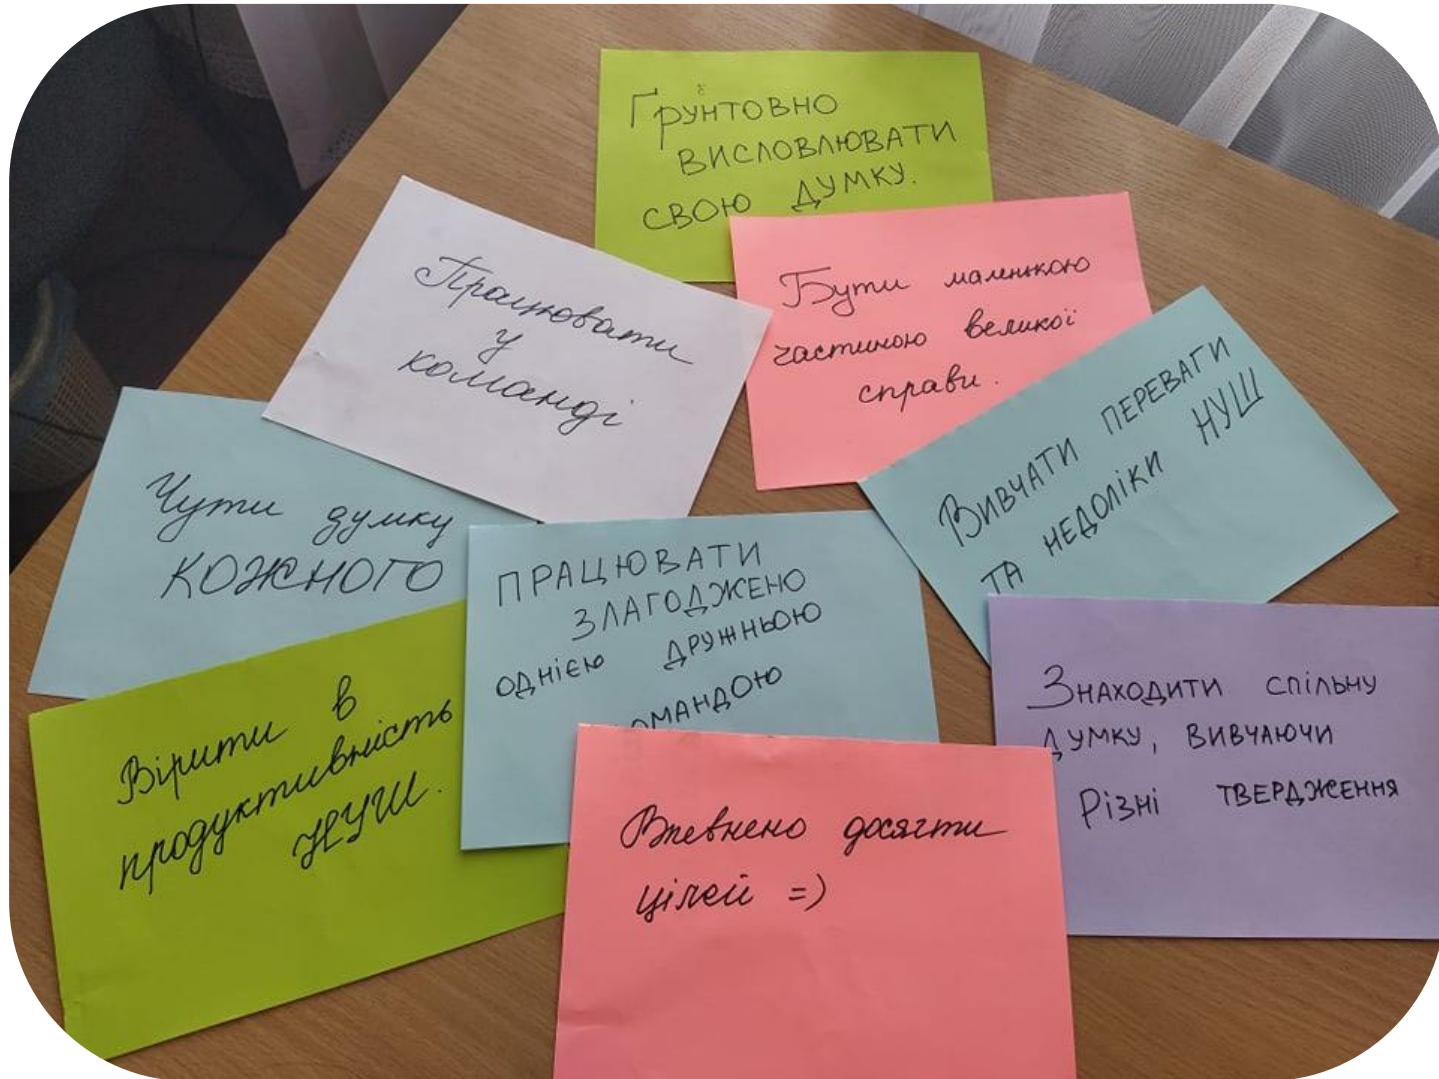 Ґрунтовно
висловлювати
свою думку.
Працювати
у
команді
Бути маленькою
частиною великої
справи.
Вивчати переваги
та недоліки НУШ
Чути думку
КОЖНОГО
ПРАЦЮВАТИ
ЗЛАГОДЖЕНО
однією дружньою
омандою
Знаходити спільну
думку, вивчаючи
різні твердження
Вірити в
продуктивність
НУШ.
Впевнено досягти
цілей =)